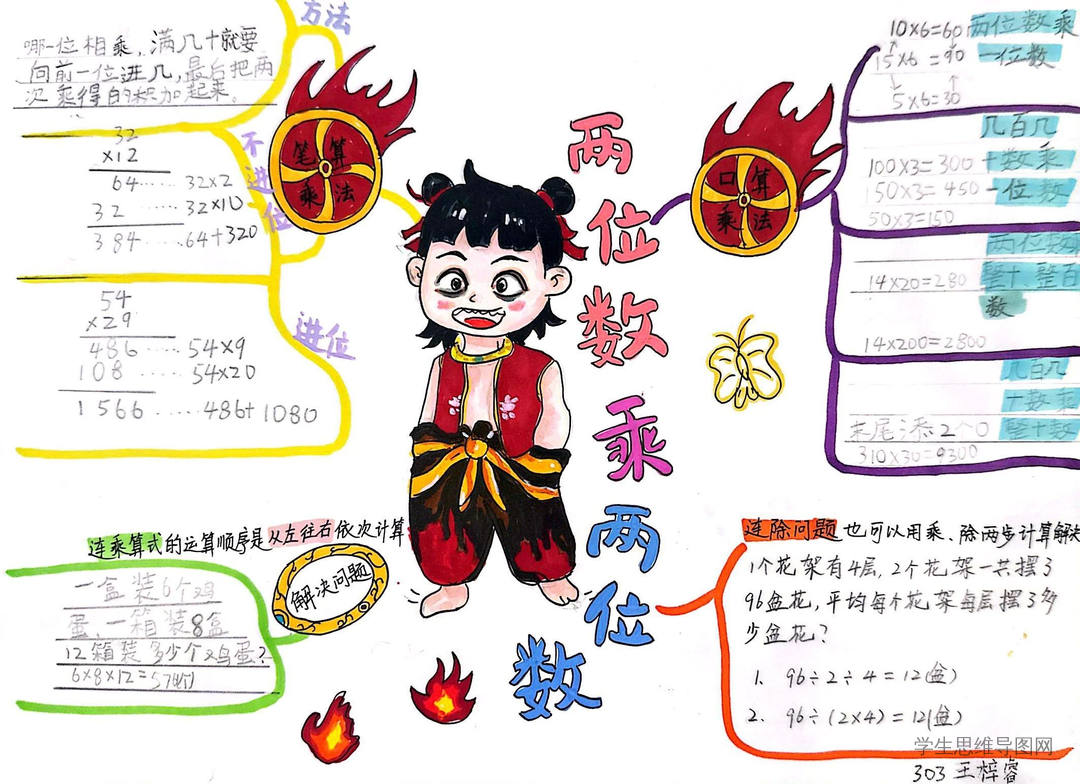 方法
哪一位相乘，满几十就要
向前一位进几，最后把两
次乘得的积加起来。
不进位
32
×12
64……32×2
32……32×10
384……64+320
进位
54
×29
486……54×9
108……54×20
1566……486+1080
笔算
乘法
两位数乘两位数
口算
乘法
两位数乘
一位数
10×6=60
15×6=90
5×6=30
几百几
十数乘
一位数
100×3=300
150×3=450
50×3=150
两位数乘
整十、整百
数
14×20=280
14×200=2800
几百几
十数乘
整十数
末尾添2个0
310×30=9300
连乘算式的运算顺序是从左往右依次计算
解决问题
一盒装6个鸡
蛋，一箱装8盒
12箱装多少个鸡蛋？
6×8×12=576(个)
连除问题也可以用乘、除两步计算解决
1个花架有4层，2个花架一共摆了
96盆花，平均每个花架每层摆了多
少盆花？
1. 96÷2÷4=12(盆)
2. 96÷(2×4)=12(盆)
学生思维导图网
303 王梓睿